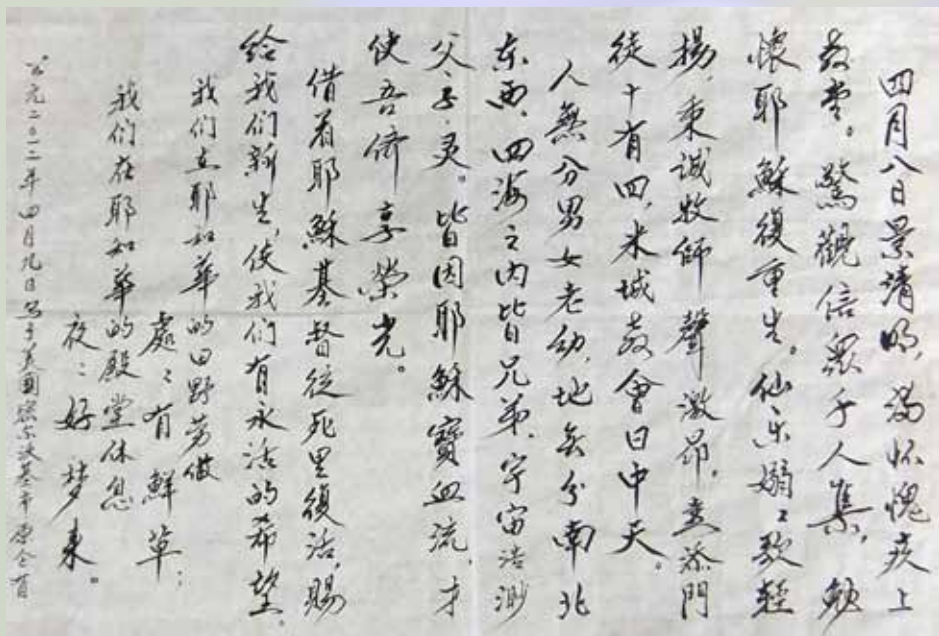 四月八日景清明,满怀愧疚上
教堂。驚觀信眾千人集,勉
懷耶穌復重生。仙乐嫋々歌轻
揚,秉诚牧師聲激昂,喜添門
徒十有四,米城教會日中天。
人無分男女老幼,地无分南北
东西,四海之内皆兄弟,宇宙浩渺
父、子、灵。皆因耶穌寶血流,才
使吾儕享榮光。
借着耶穌基督從死里復活,賜
给我们新生,使我们有永活的希望。
我们在耶和華的田野劳做
處々有鮮草;
我们在耶和華的殿堂休息
夜々好梦来。
公元二〇一二年四月九日写于美国密尔沃基市